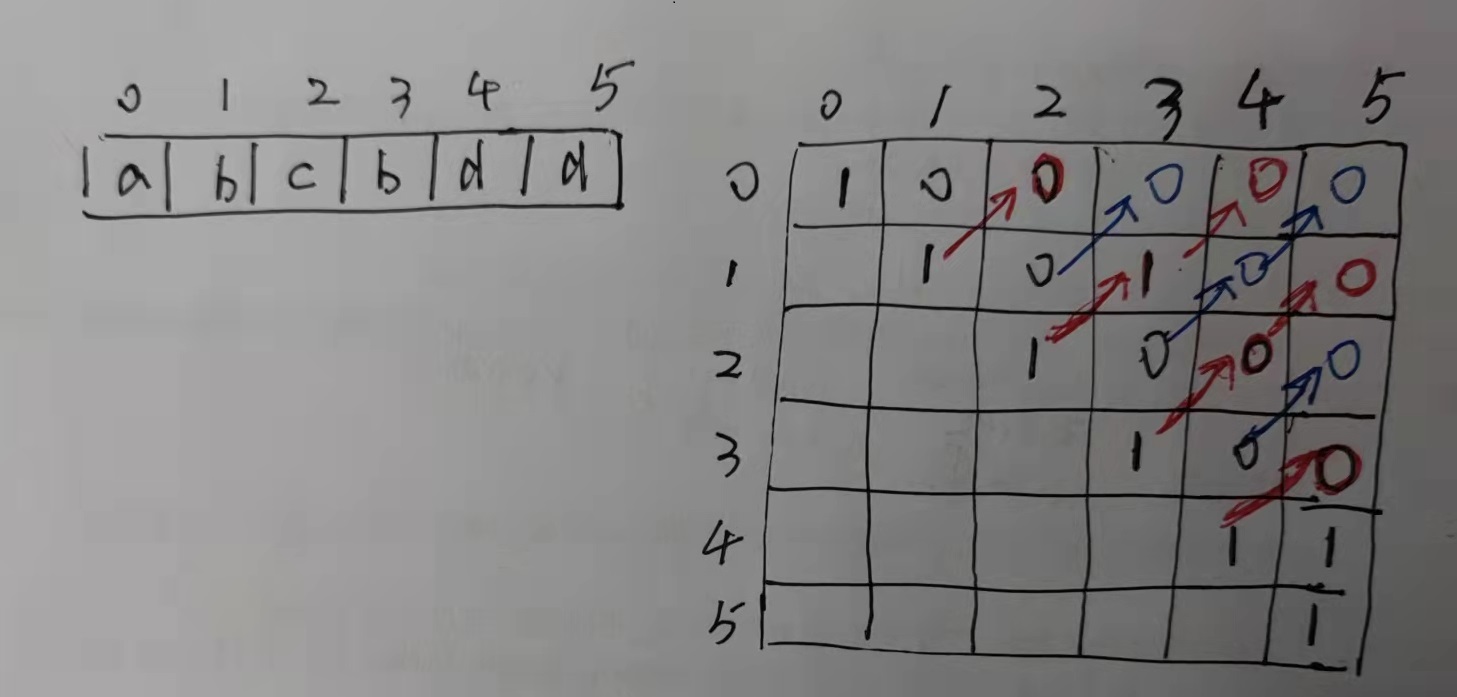 0 1 2 3 4 5
a b c b d d
0 1 2 3 4 5
0 1 0 0 0 0 0
1 1 0 1 0 0
2 1 0 0 0
3 1 0 0
4 1 1
5 1